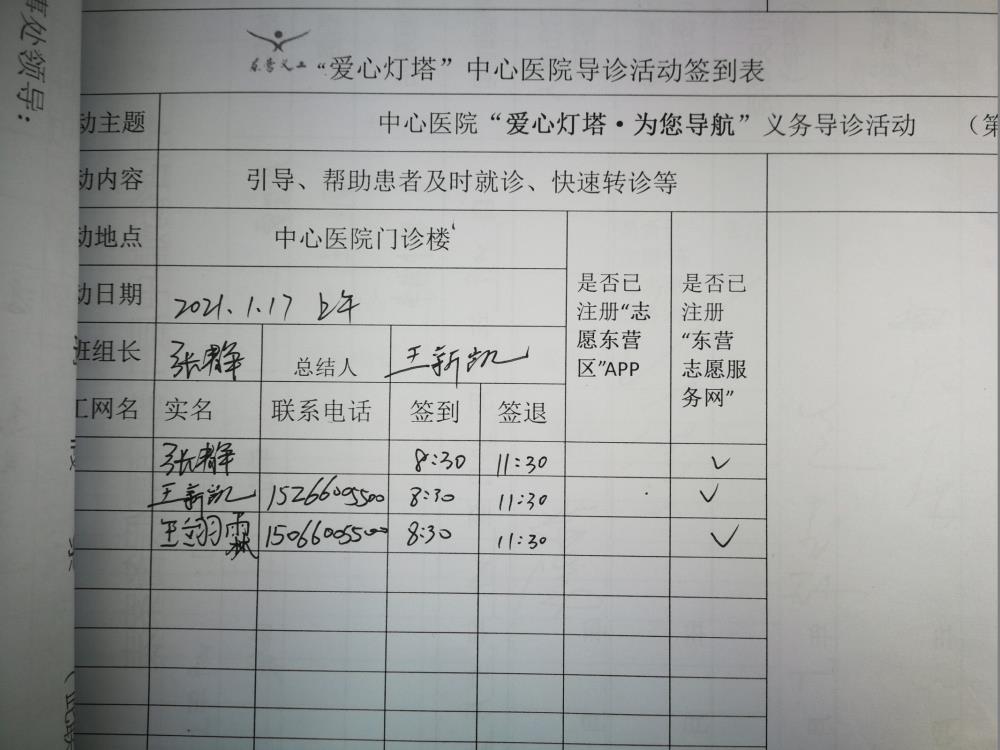 事处领导：
东营义工 “爱心灯塔”中心医院导诊活动签到表
动主题 中心医院“爱心灯塔·为您导航”义务导诊活动 （第
动内容 引导、帮助患者及时就诊、快速转诊等
动地点 中心医院门诊楼
动日期 2021.1.17 上午
班组长 张静 总结人 王新凯
是否已
注册“志
愿东营
区”APP
是否已
注册
“东营
志愿服
务网”
工网名 实名 联系电话 签到 签退
张静 8:30 11:30 ✓
王新凯 15266005500 8:30 11:30 ✓
王翊霖 15066005500 8:30 11:30 ✓